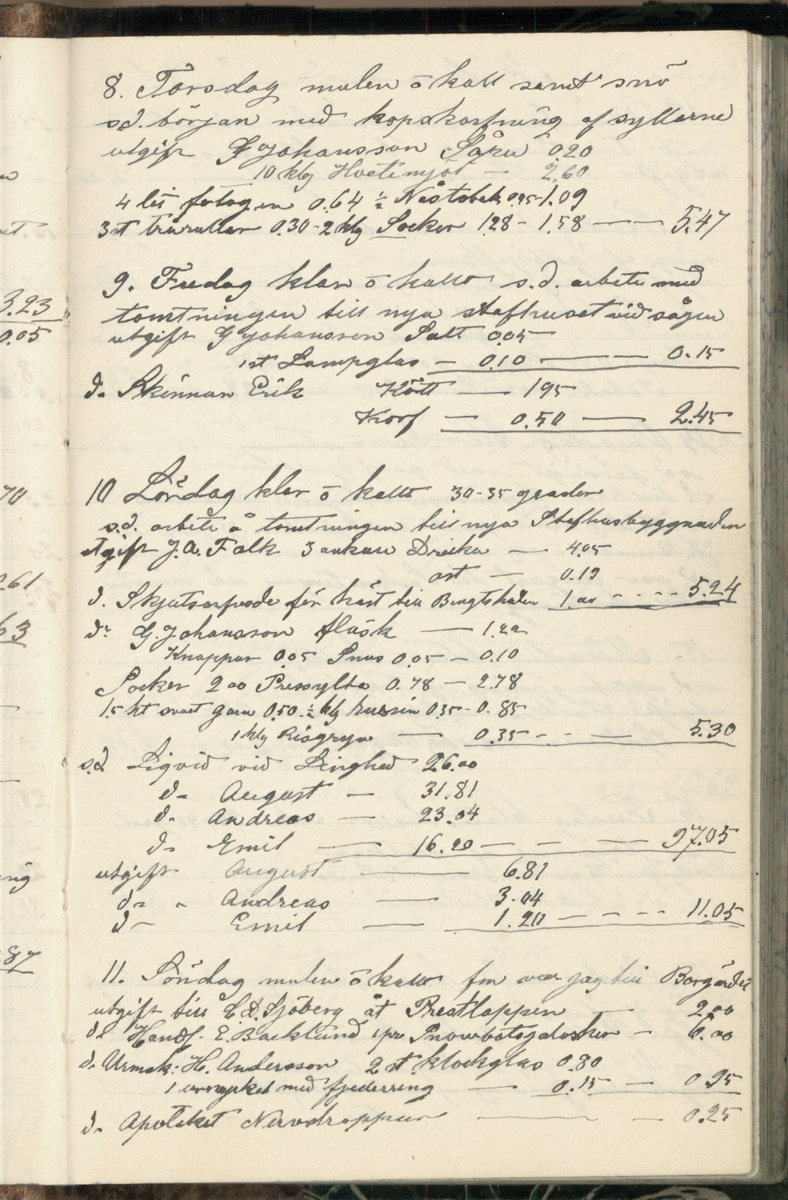 8. Torsdag mulen o kall samt snö
s.d. början med kopskarfning af syllarne
utgift G Johansson Såpa 0.20
10 klg Hvetemjöl — 2.60
4 lit fotogen 0.64 ½ Nästobak 0.45 - 1.09
3 st trårullar 0.30 - 2 klg Socker 1.28 - 1.58 — 5.47
9. Fredag klar o kallt s.d. arbete med
tomtningen till nya stafhuset vid sågen
utgift G Johansson Salt 0.05
1 st Lampglas — 0.10 — 0.15
d. Skinnar Erik Kött — 1.95
Korf — 0.50 — 2.45
10 Lördag klar o kallt 30-35 grader
s.d. arbete å tomtningen till nya Stafhusbyggnaden
utgift J.A. Falk 3 ankare Dricka — 4.05
ost — 0.19
d. Skjutsarfvode för häst till 1.00 - - - - 5.24
d. G. Johansson fläsk —
Knappar 0.05 Snus 0.05 — 0.10
Socker 2.00 Pressylta 0.78 — 2.78
1.5 ht svart garn 0.50 ½ klg russin 0.35 - 0.85
1 klg Risgryn — 0.35 - - — 5.30
s.d. Liqvid vid Linghed 26.00
d. August — 31.81
d. Andreas — 23.04
d. Emil — 16.20 — — — 97.05
utgift August — 6.81
d. " Andreas — 3.04
d. Emil — 1.20 — - - - 11.05
11. Söndag mulen o kallt fm var jag till Borgärdet
utgift till E.D. Sjöberg åt Prestlappen — 2.00
d. Handl. E. Backlund 1 par — 6.00
d. Urmak. H. Andersson 2 st klockglas 0.80
1 urnyckel med fjederring — 0.15 — 0.95
d. Apoteket Nervdroppar — — 0.25
3.23
0.05
70
.61
63
87